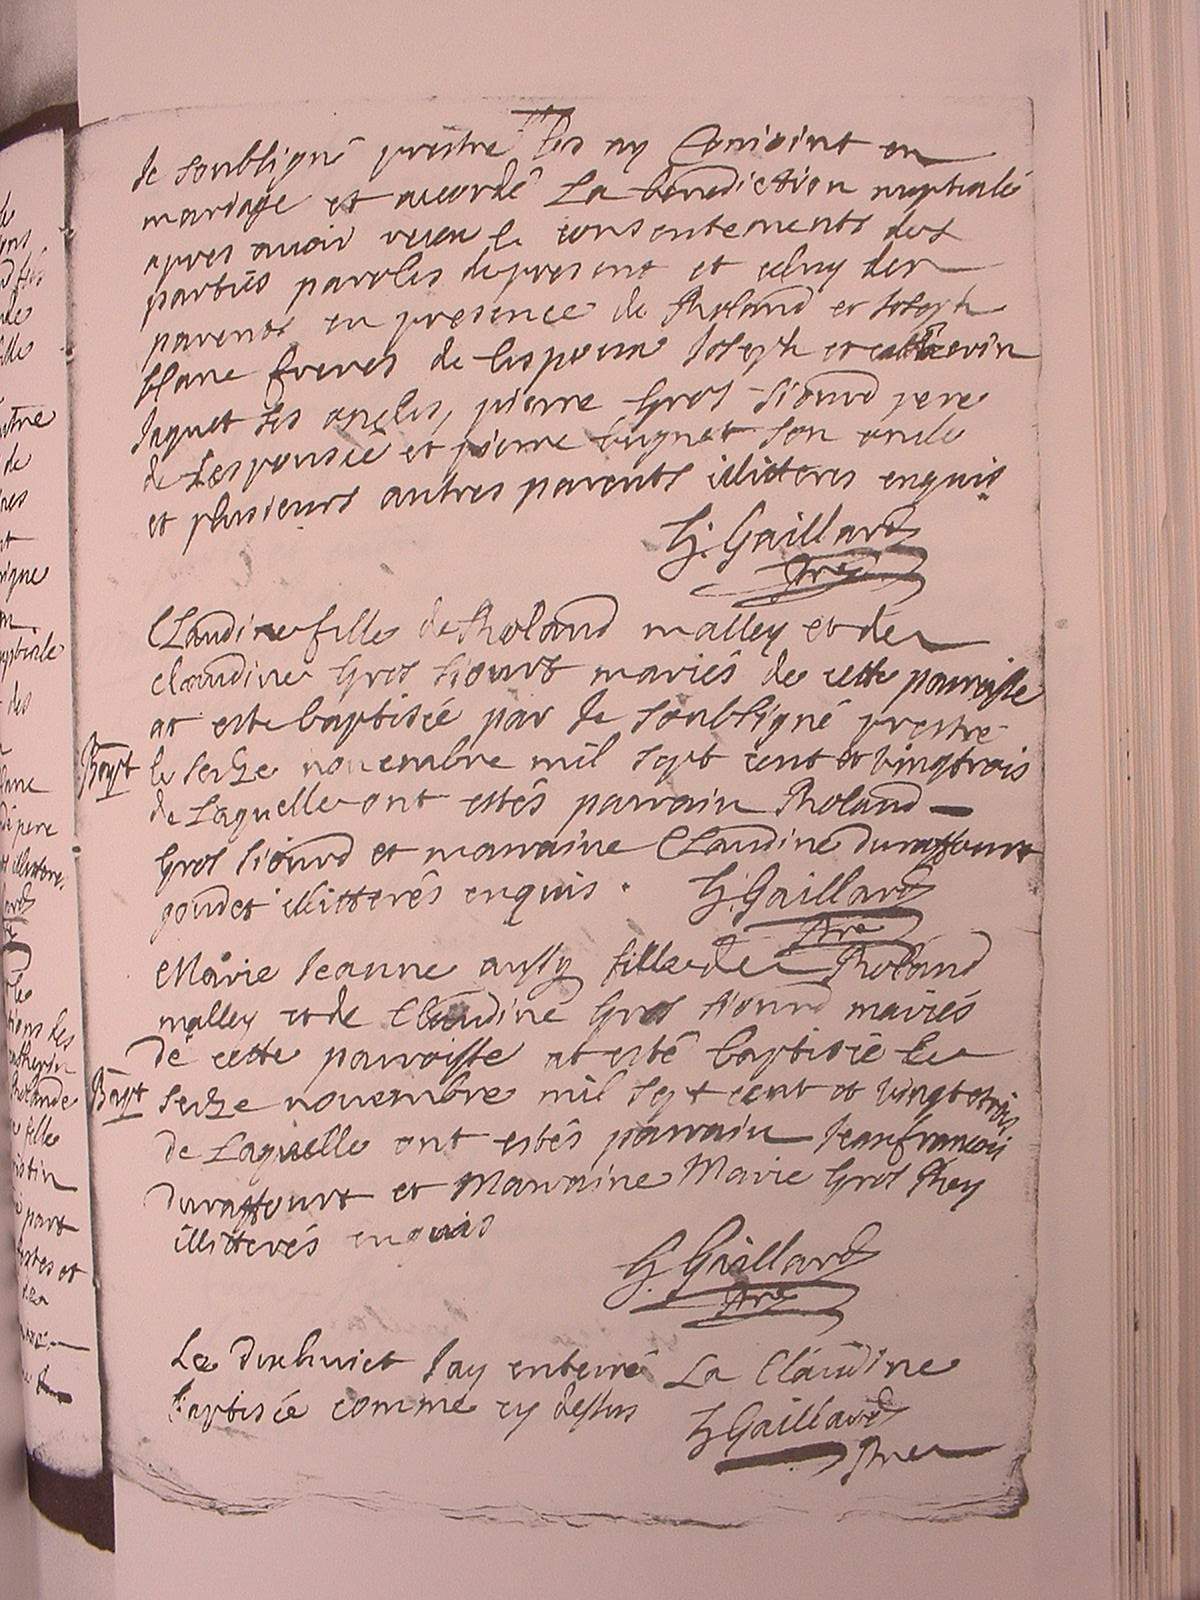 Je soubsigné prestre les ay conioint en
mariage et accordé La benediction nuptiale
apres avoir receu le consentements des
parties paroles de present et celuy des
parents en presence de Roland et Joseph
blanc freres de lespoux Joseph et catherin
Jaquet ses oncles, pierre Gros Siourd pere
de Lespousée et pierre bugnet son oncle
et plusieurs autres parents illitteres enquis
G. Gaillard
Pre
Claudine fille de Roland malley et de
claudine Gros Siourt mariés de cette parroisse
at esté baptisée par Je soubsigné prestre
Bapt le seize novembre mil sept cent et vingtrois
de Laquelle ont estés parrain Roland
Gros Siourd et marraine Claudine Duraffourt
goudet illitterés enquis.
G. Gaillard
Pre
Marie Jeanne aussy fille de Roland
malley et de Claudine Gros Siourd mariés
de cette parroisse at esté baptisée le
Bapt seize novembre mil sept cent et vingt et trois
de Laquelle ont estés parrain Jean francois
Duraffourt et Marraine Marie Gros
illitterés enquis
G. Gaillard
Pre
Le dixhuict Jay enterré La Claudine
baptisée comme cy dessus
G Gaillard
Pre